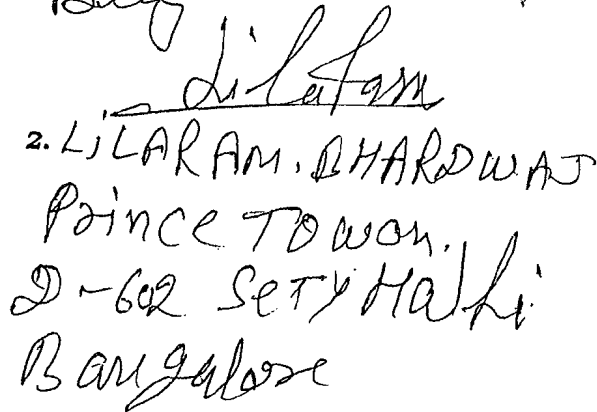 Lilaram
2. LiLARAM. BHARDWAJ
Prince TOWON.
D-602 SETY Halhi
Bangalore